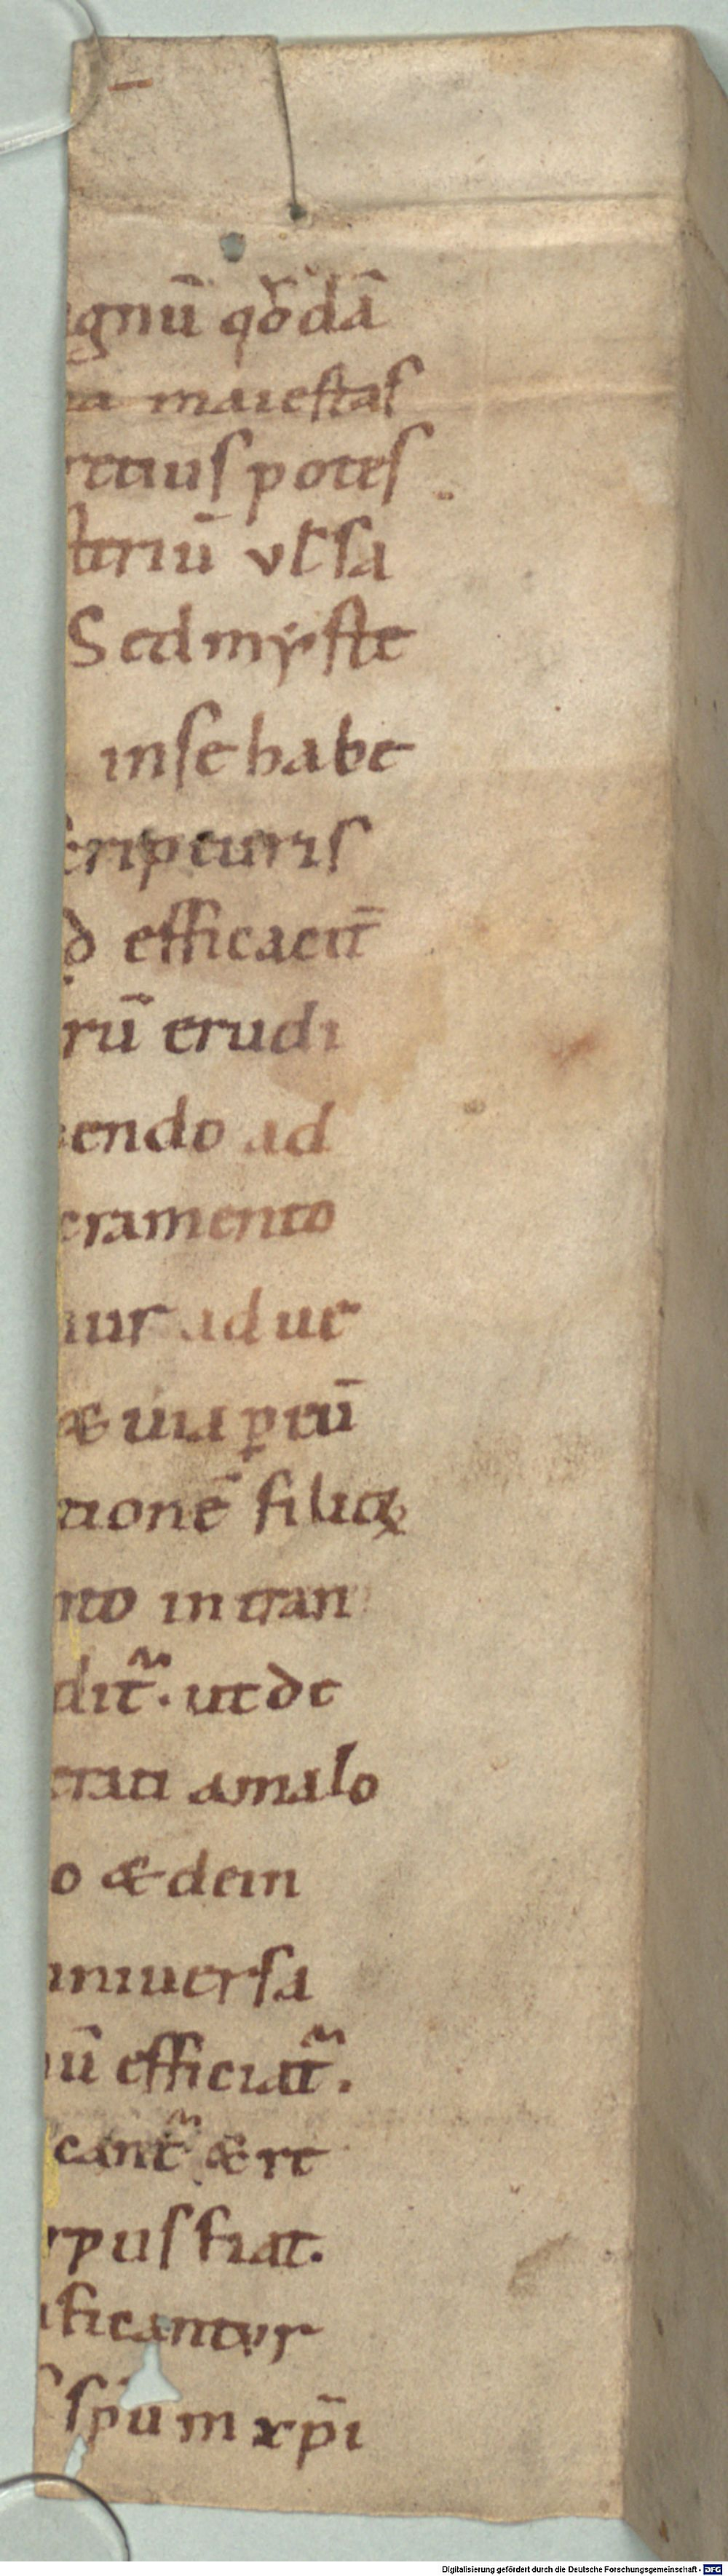 gnū qōdā
a maiestas
rtius potes
teriū vƚ sa
Sed myste
in se habe
criptaris
d efficacit̄
rū erudi
endo ad
cramento
tur ad ue
& uia p̱ eū
tionē filioꝝ
nto in tran
dit᷑. ut de
trati a malo
o & dein
uniuersa
ū efficiat᷑.
cant᷑ & re
rpus fiat.
ificantur
sp̄um xp̄i
Digitalisierung gefördert durch die Deutsche Forschungsgemeinschaft - DFG